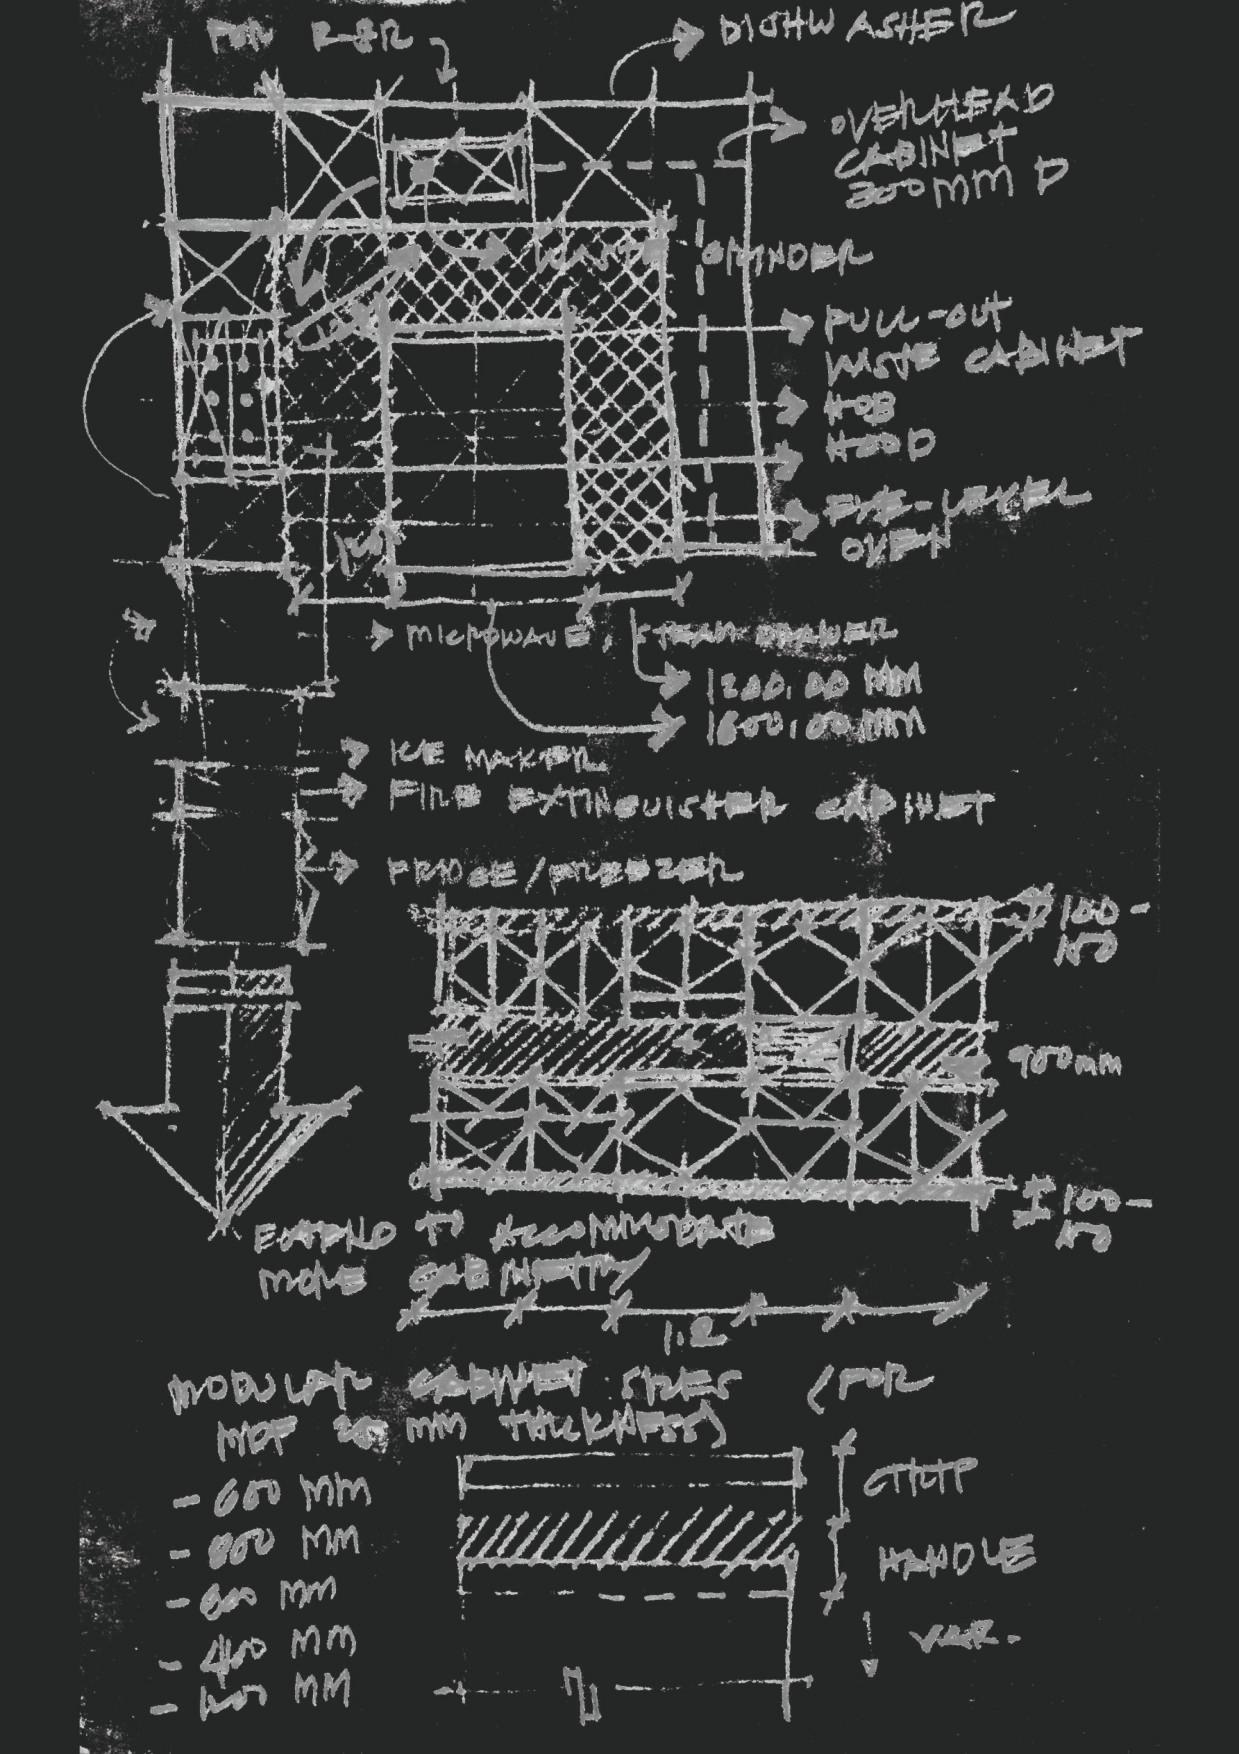 FOR
DISHWASHER
OVERHEAD
CABINET
300MM D
WASTE GRINDER
PULL-OUT
WASTE CABINET
HOB
HOOD
EYE-LEVEL
OVEN
MICROWAVE, STEAM DRAWER
1200.00 MM
1600.00 MM
ICE MAKER
FIRE EXTINGUISHER CABINET
FRIDGE/FREEZER
100-
150
900mm
100-
150
EXTEND TO ACCOMMODATE
MORE CABINETRY
1.2
MODULAR CABINET SIZES (FOR
MDF MM THICKNESS)
- 600 MM
MM
MM
- 400 MM
MM
HANDLE
VAR.